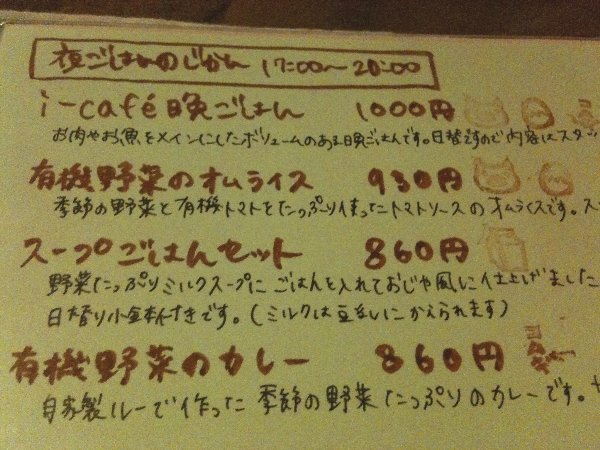 夜ごはんのじかん 17:00〜20:00
i-café晩ごはん 1000円
お肉やお魚をメインにしたボリュームのある晩ごはんです。日替ですので内容はスタッ
有機野菜のオムライス 930円
季節の野菜と有機トマトをたっぷり使ったトマトソースのオムライスです。ス
スープごはんセット 860円
野菜たっぷりミルクスープにごはんを入れておじや風に仕上げました
日替り小鉢付きです。(ミルクは豆乳にかえられます)
有機野菜のカレー 860円
自家製ルーで作った季節の野菜たっぷりのカレーです。